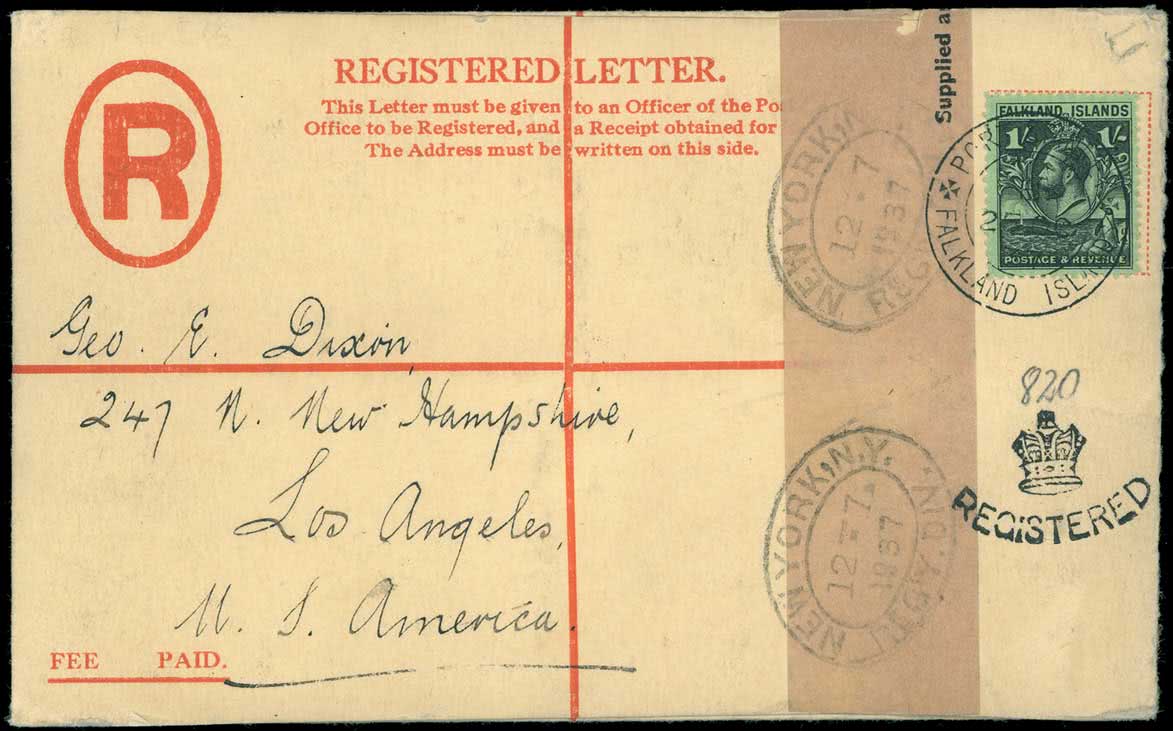 REGISTERED LETTER.
This Letter must be given to an Officer of the
Office to be Registered, and a Receipt obtained for
The Address must be written on this side.
R
Supplied
FALKLAND ISLANDS
1/- 1/-
POSTAGE & REVENUE
FALKLAND
NEW YORK,
12-7
1937
Geo. E. Dixon,
247 N. New Hampshire,
Los Angeles,
U. S. America.
820
REGISTERED
NEW YORK, N.Y.
12-7
1937
REG'Y. DIV.
FEE PAID.